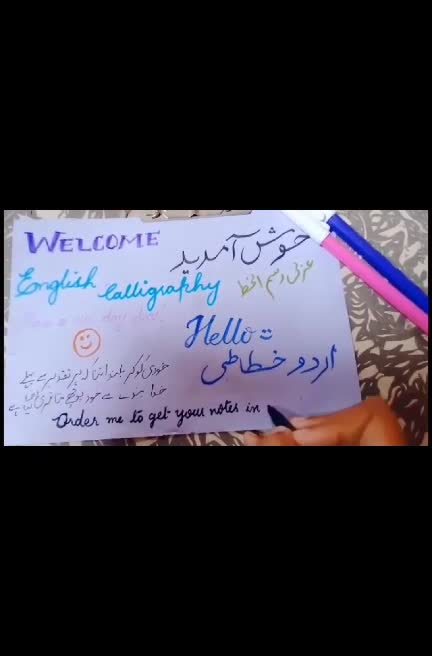 WELCOME
خوش آمدید
English Calligraphy
عربی رسم الخط
Have a nice day dear!
Hello =
اردو خطاطی
خودی کو کر بلند اتنا کہ ہر تقدیر سے پہلے
خدا بندے سے خود پوچھے بتا تیری رضا کیا ہے
Order me to get your notes in